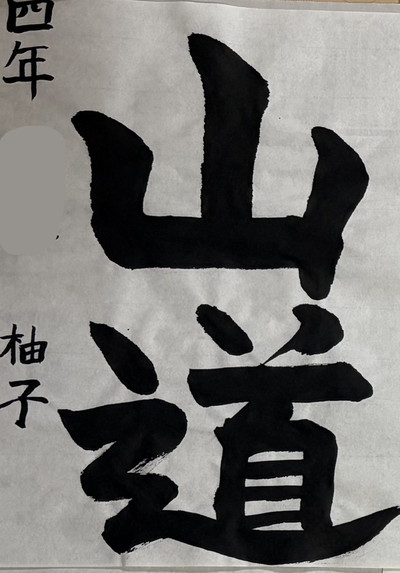 山道
四年
柚子